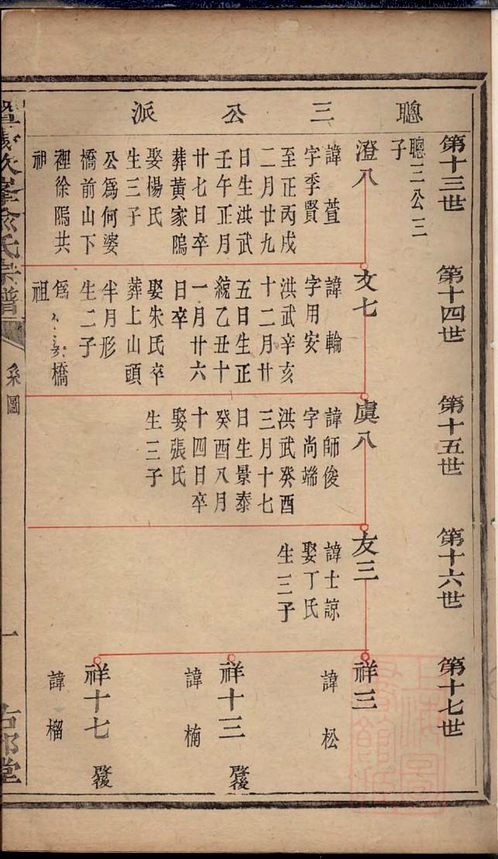 聰三公派
第十三世
第十四世
第十五世
第十六世
第十七世
聰三公三
子
澄八
諱萱
字季賢
至正丙戌
二月廿九
日生洪武
壬午正月
廿七日卒
葬黄家塢
娶楊氏
生三子
公爲何婆
橋前山下
裡徐塢共
祖
文七
諱輪
字用安
洪武辛亥
十二月廿
五日生正
統乙丑十
一月廿六
日卒
娶朱氏卒
葬上山頭
半月形
生二子
橋
祖
虞八
諱師俊
字尚端
洪武癸酉
三月十七
日生景泰
癸酉八月
十四日卒
娶張氏
生三子
友三
諱士諒
娶丁氏
生三子
祥三
諱松
祥十三
啓後
諱楠
祥十七
啓後
諱榴
氏宗譜
系圖
一
堂